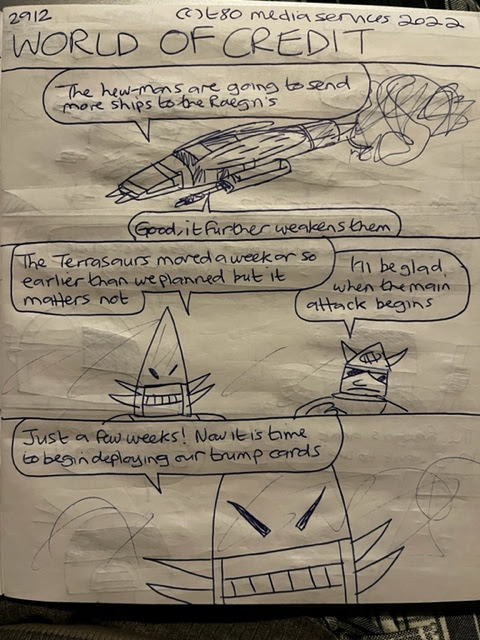 2912
(c)t80 mediaservices 2022
WORLD OF CREDIT
The hew-mons are going to send
more ships to the Raegn's
Good, it further weakens them
The Terrasaurs moved a week or so
earlier than we planned but it
matters not
I'll be glad,
when the main
attack begins
Just a few weeks! Now it is time
to begin deploying our trump cards